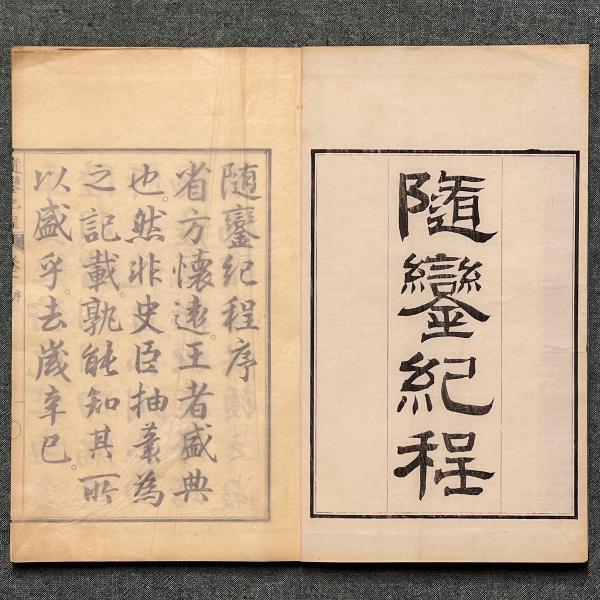 隨鑾紀程
隨鑾紀程序
省方懷遠。王者盛典
也。然非史臣抽毫為
之記載。孰能知其所
以盛乎。去歲辛巳。